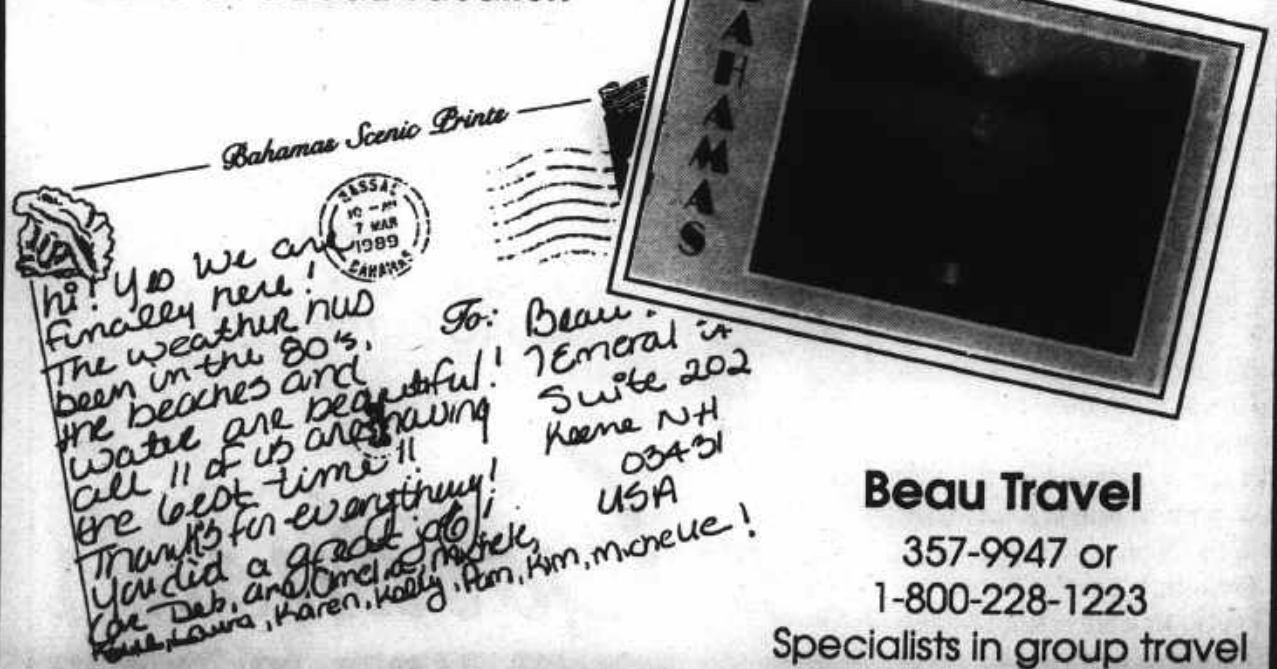 Bahamas Scenic Prints
BAHAMAS
NASSAU
10 - AM
7 MAR
1989
BAHAMAS
hi! Yes We are
finally here!
The weather has
been in the 80's,
the beaches and
water are beautiful!
all 11 of us are having
the best time!!
Thanks for everything!
You did a great job!
Deb, and Michele,
Laura, Karen, Kelly, Pam, Kim, Michelle!
To: Beau
7 Emeral St
Suite 202
Keene NH
03431
USA
Beau Travel
357-9947 or
1-800-228-1223
Specialists in group travel